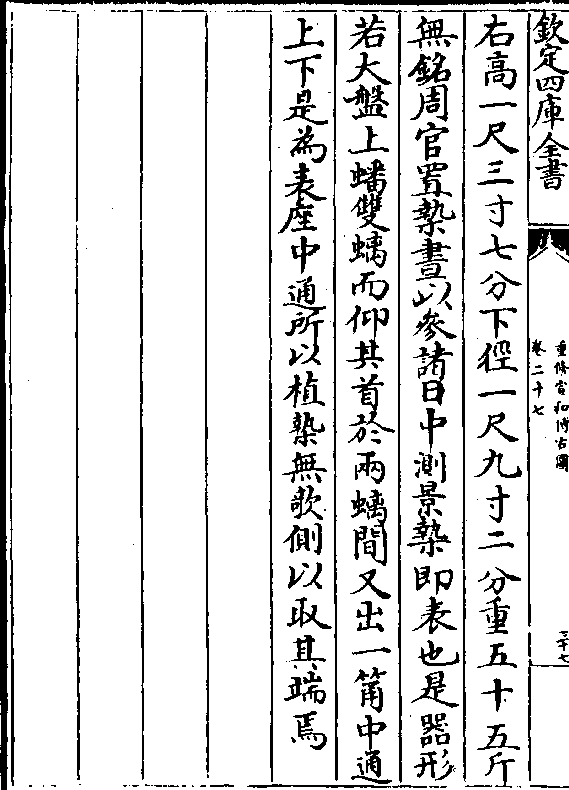 欽定四庫全書
重修宣和博古圖
卷二十七
三十七
右高一尺三寸七分下徑一尺九寸二分重五十五斤
無銘周官置槷晝以參諸日中測景槷即表也是器形
若大盤上蟠雙螭而仰其首於兩螭間又出一筩中通
上下是為表座中通所以植槷無欹側以取其端焉